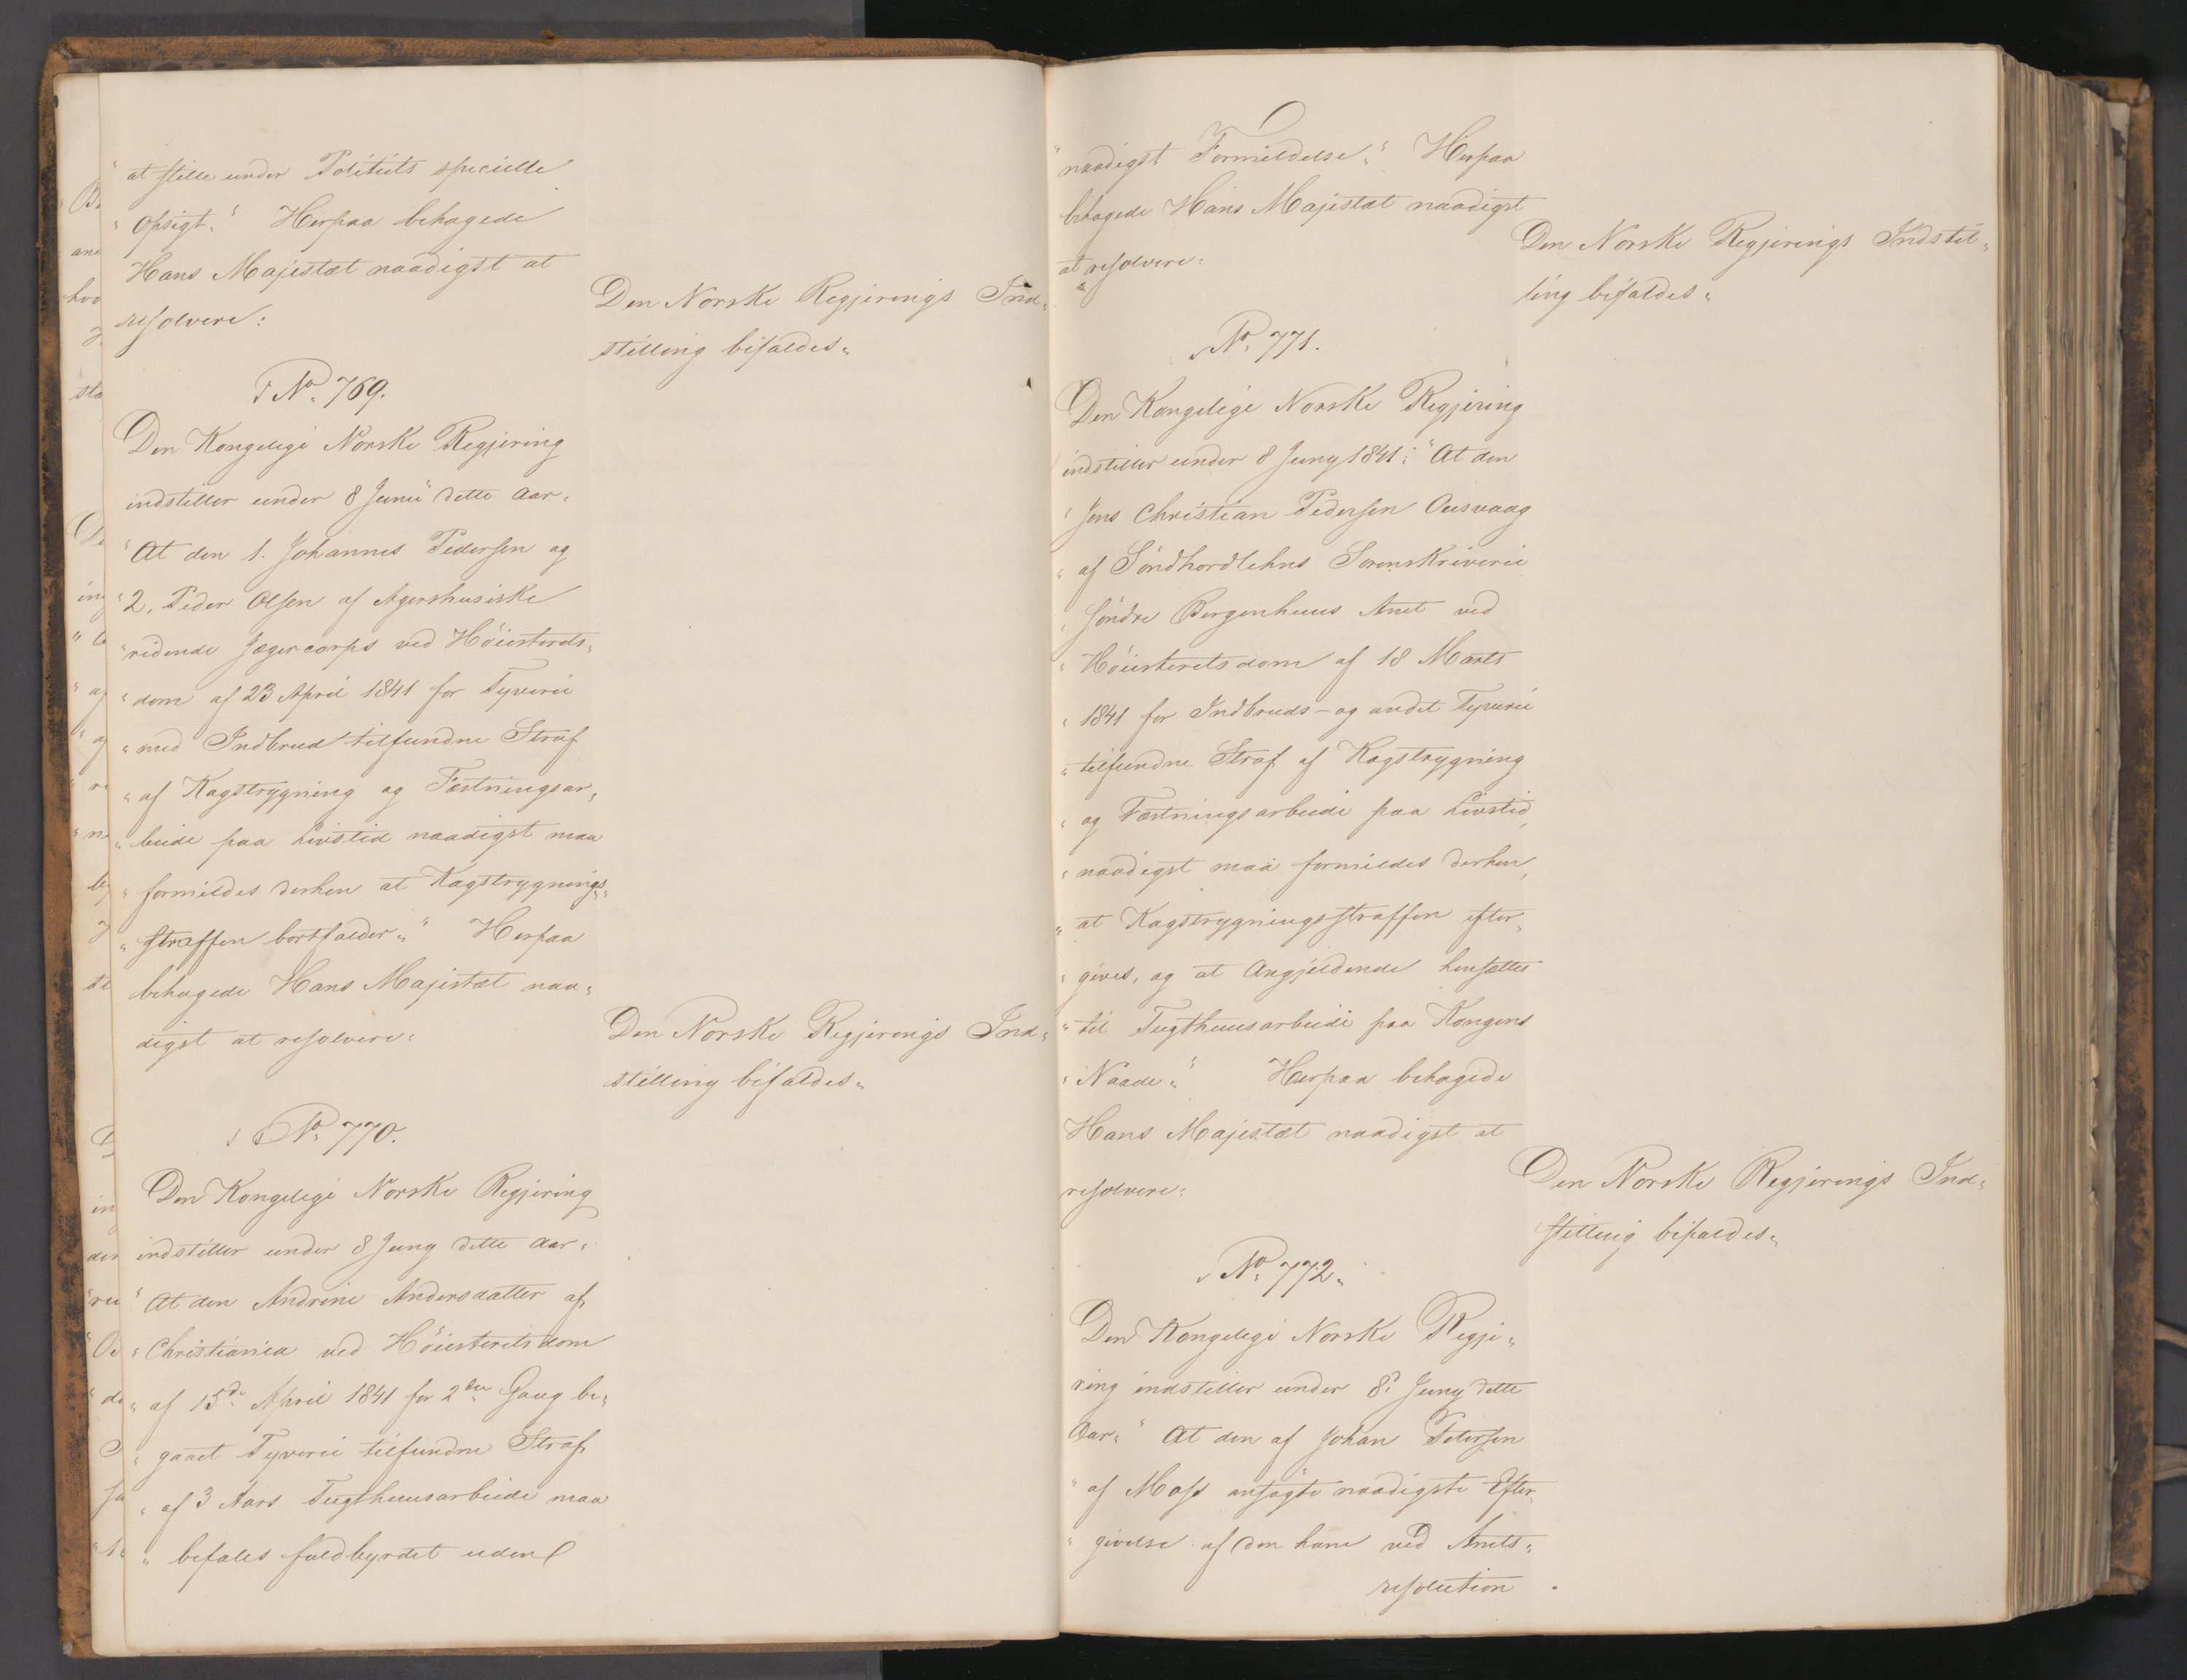 "at stille under Politiets specielle
"Opsigt." Herpaa behagede
Hans Majestæt naadigst at
resolvere:
Den Norske Regjerings Ind-
stilling bifaldes.
No. 769.
Den Kongelige Norske Regjering
indstiller under 8 Junii dette Aar:
"At den 1. Johannes Pedersen og
"2, Peder Olsen af Agershusiske
"ridende Jægercorps ved Høiesterets-
"dom af 23 April 1841 for Tyverie
"med Indbrud tilfundne Straf
"af Kagstrygning og Fæstningsar-
"beide paa Livstid naadigst maa
"formildes derhen at Kagstrygnings-
"straffen bortfalder." Herpaa
behagede Hans Majestæt naa-
digst at resolvere:
Den Norske Regjerings Ind-
stilling bifaldes.
No. 770.
Den Kongelige Norske Regjering
indstiller under 8 Juny dette Aar:
"At den Andrine Andersdatter af
"Christiania ved Høiesteretsdom
"af 15de April 1841 for 2den Gang be-
"gaaet Tyverie tilfundne Straf
"af 3 Aars Tugthuusarbeide maa
"befales fuldbyrdet uden
"naadigst Formildelse." Herpaa
behagede Hans Majestæt naadigst
at resolvere:
Den Norske Regjerings Indstil-
ling bifaldes.
No. 771.
Den Kongelige Norske Regjering
indstiller under 8 Juny 1841: "At den
"Jens Christian Pedersen Ousvaag
"af Söndhordlehns Sorenskriverie
"Söndre Bergenhuus Amt ved
"Höiesteretsdom af 18 Marts
"1841 for Indbruds- og andet Tyverie
"tilfundne Straf af Kagstrygning
"og Fæstningsarbeide paa Livstid,
"naadigst maa formildes derhen,
"at Kagstrygningsstraffen efter-
"gives, og at Angjeldende hensættes
"til Tugthuusarbeide paa Kongens
"Naade." Herpaa behagede
Hans Majestæt naadigst at
resolvere:
Den Norske Regjerings Ind-
stilling bifaldes.
No. 772.
Den Kongelige Norske Regje-
ring indstiller under 8d Juny dette
Aar: "At den af Johan Petersen
"af Moss ansögte naadigste Efter-
"givelse af den ham ved Amts-
resolution